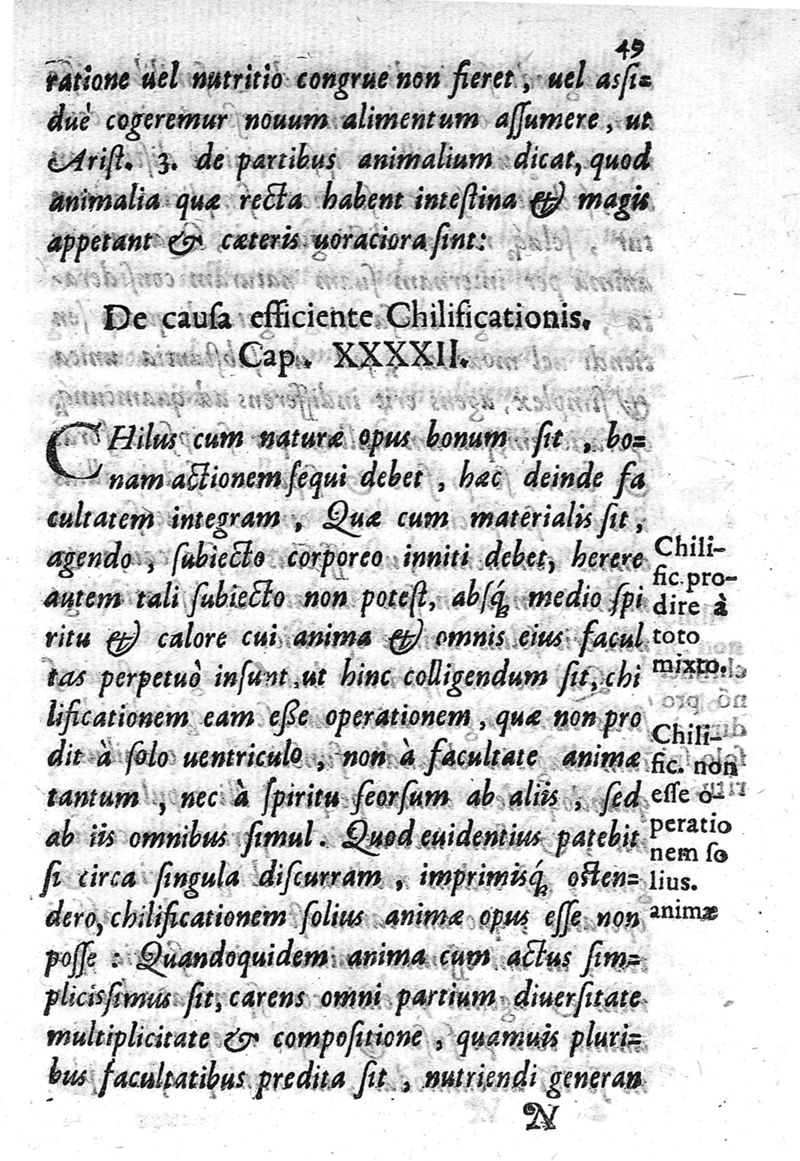 49
ratione uel nutritio congrue non fieret, uel assi=
duè cogeremur nouum alimentum aſſumere, ut
Ariſt. 3. de partibus animalium dicat, quod
animalia quæ recta habent inteſtina & magis
appetant & cæteris uoraciora ſint:
De cauſa efficiente Chilificationis.
Cap. XXXXII.
CHilus cum naturæ opus bonum ſit, bo=
nam actionem ſequi debet, hæc deinde fa
cultatem integram, Quæ cum materialis ſit,
agendo, ſubiecto corporeo inniti debet, herere
autem tali ſubiecto non poteſt, abſq́ medio ſpi
ritu & calore cui anima & omnis eius facul
tas perpetuò inſunt, ut hinc colligendum ſit, chi
lificationem eam eſſe operationem, quæ non pro
dit à ſolo uentriculo, non à facultate animæ
tantum, nec à ſpiritu ſeorſum ab aliis, ſed
ab iis omnibus ſimul. Quod euidentius patebit
ſi circa ſingula diſcurram, imprimisq́ oſten=
dero, chilificationem ſolius animæ opus eſſe non
poſſe: Quandoquidem anima cum actus ſim=
pliciſſimus ſit, carens omni partium diuerſitate
multiplicitate & compoſitione, quamuis pluri=
bus facultatibus predita ſit, nutriendi generan
N
Chili-
fic. pro-
dire à
toto
mixto.
Chili-
fic. non
eſſe o-
peratio
nem ſo
lius.
animæ